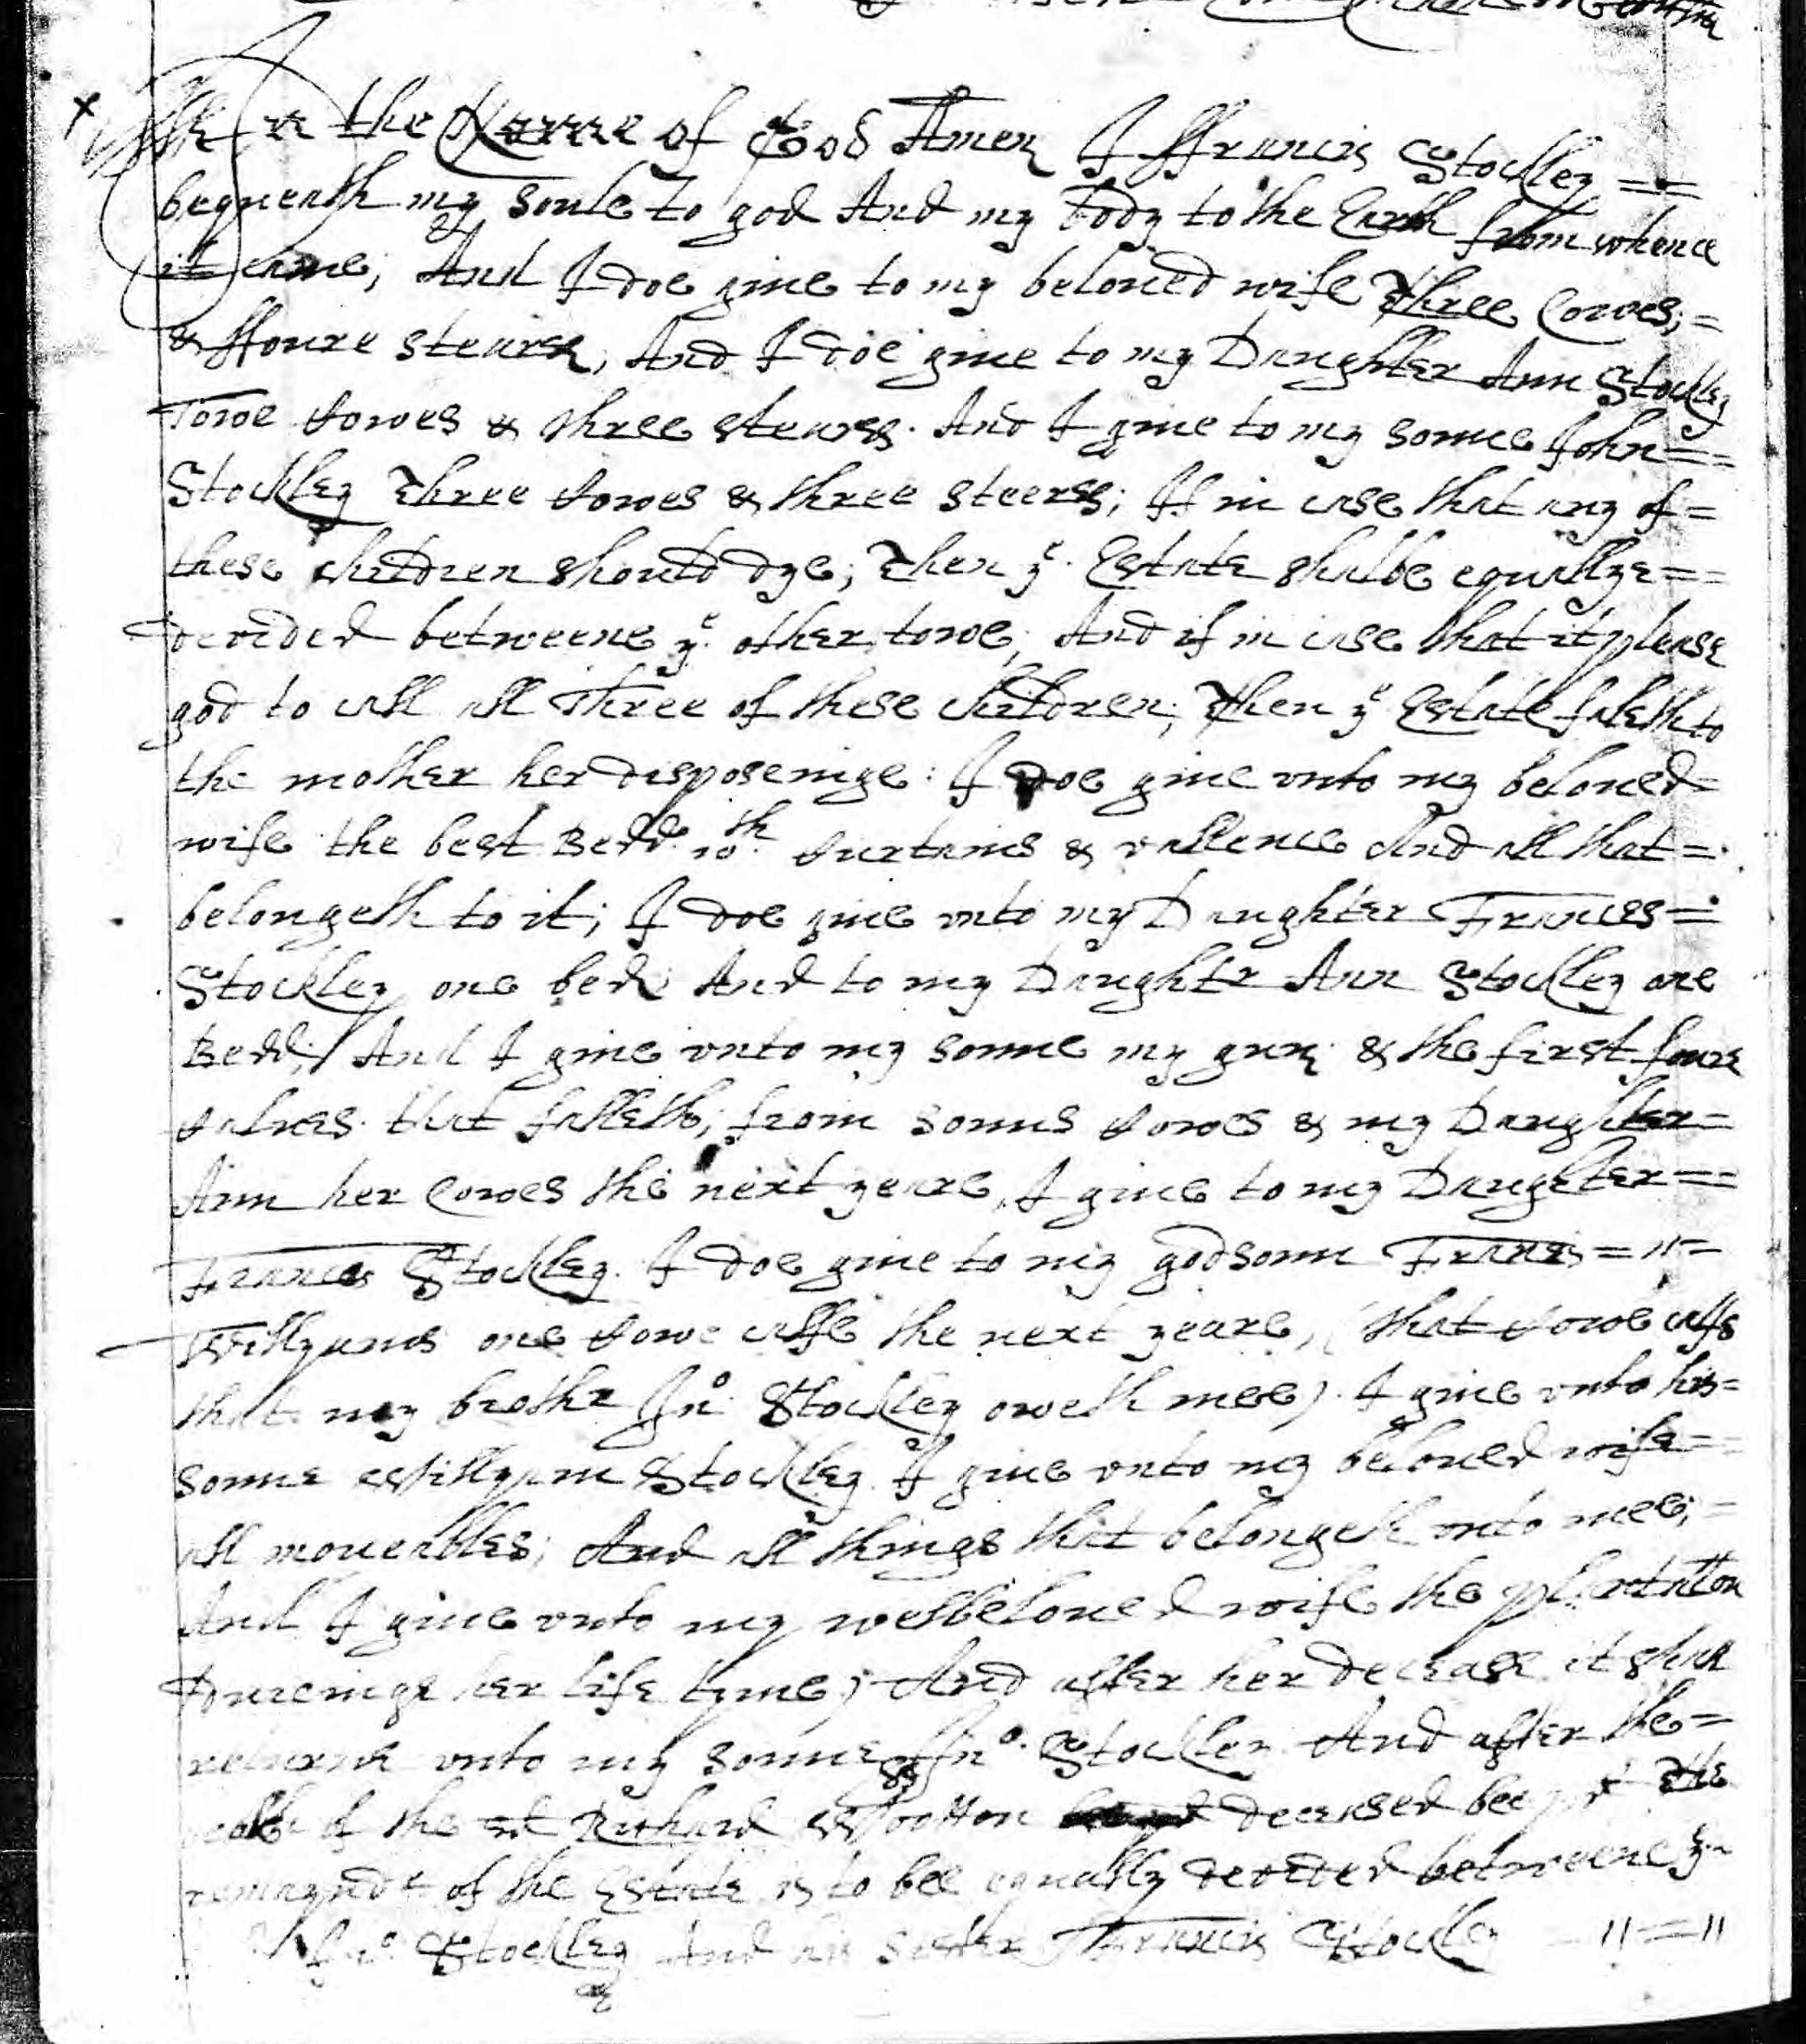 In the Name of God Amen I ffrancis Stockley ==
bequeath my soule to god And my body to the Earth from whence
it came; And I doe giue to my beloued wife Three Cowes; =
& ffoure steares, And I doe giue to my Daughter Ann Stockley
Towe Cowes & three steares. And I giue to my sonne John ==
Stockley Three Cowes & three steeres; If in case that any of =
these children should dye; Then ye Estate shalbe equallye ==
devided betweene ye other towe; And if in case that it please
god to call all Three of these children; Then ye Estate faleth to
the mother her disposeinge: I doe giue vnto my beloued =
wife the best Bedd wth Curtains & vallence And all that =
belongeth to it; I doe giue vnto my Daughter Frances =
Stockley one bed; And to my Daughtr Ann Stockley one
Bedd; And I giue vnto my sonne my gun; & the first foure
Calues that falleth; from sonns Cowes & my Daughter =
Ann her Cowes the next yeare, I giue to my Daughter ==
Frances Stockley. I doe giue to my godsonn Francis = " =
Willyams one Cowe calfe the next yeare, (that Cowe calfe
that my brothr Jno Stockley oweth mee). I giue vnto his =
sonne Willyam Stockley. I giue vnto my beloued wife =
all moueables; And all things that belongeth vnto mee; =
And I giue vnto my welbeloued wife the plantation
Dureinge her life tyme; And after her decease it shall
returne vnto my sonne Jno. Stockley And after the =
of the sd Richard Wootton deceased bee The
remayndr of the Estate is to bee equally devided betweene ye
Jno. Stockley And his sister Francis Stockley " = "